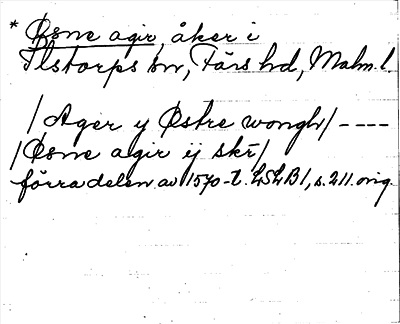 * Øsne agir, åker i
Ilstorps sn, Färs hd, Malm. l.
/Ager y Østre wongh/ ----
/Øsne agir ij skr̄/
förra delen av 1570-t. LSLB1, s. 211. orig.